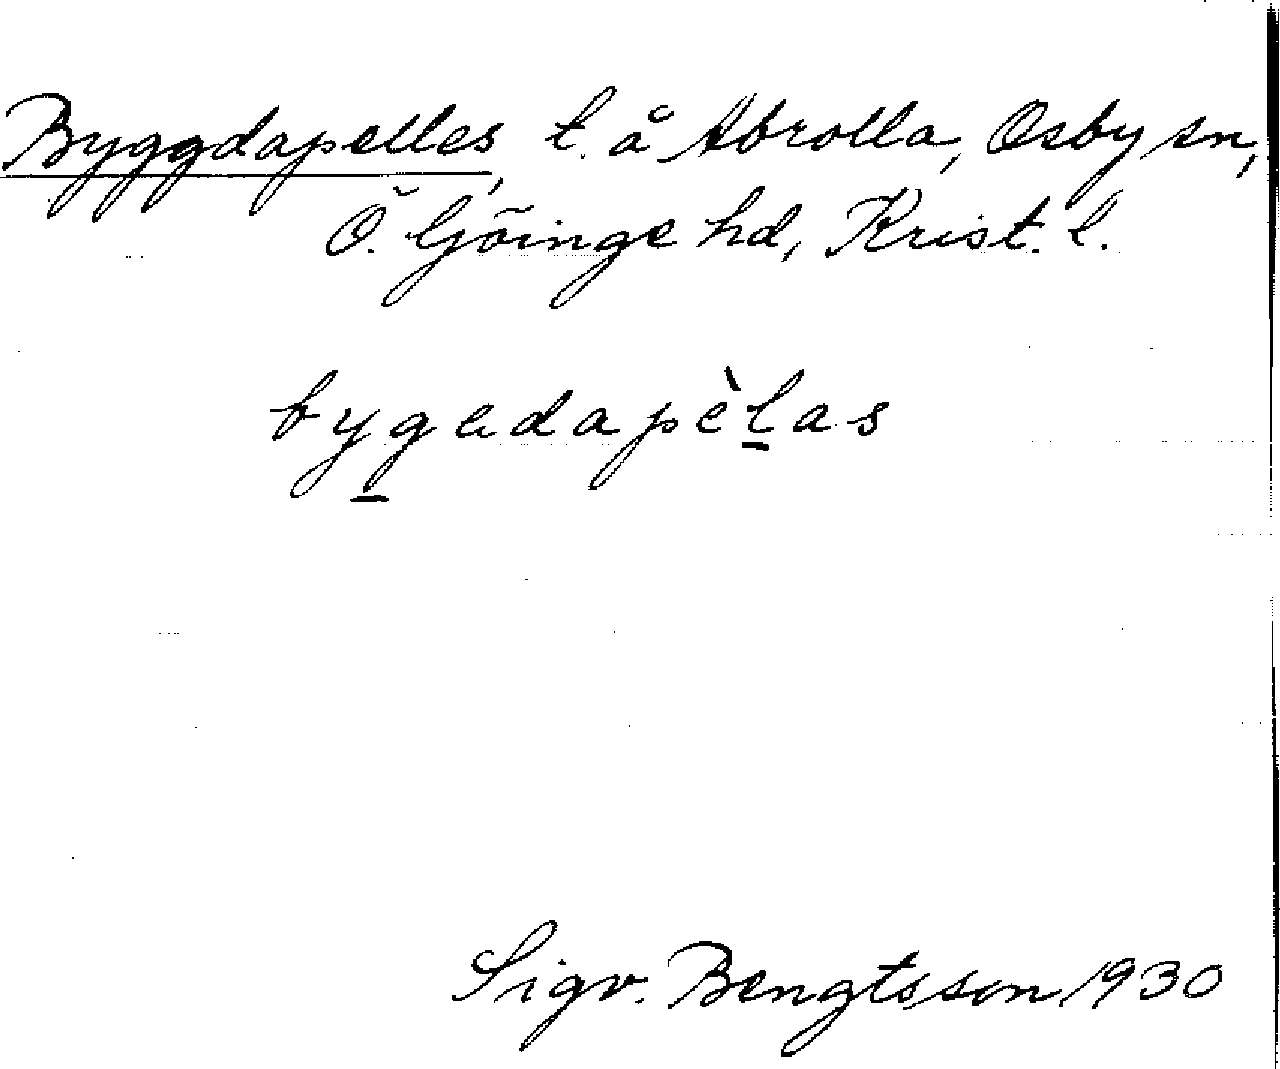 Byggdapelles, t. å Abrolla, Osby sn,
Ö. Göinge hd, Krist. l.
bygadapèlas
Sigv. Bengtsson 1930